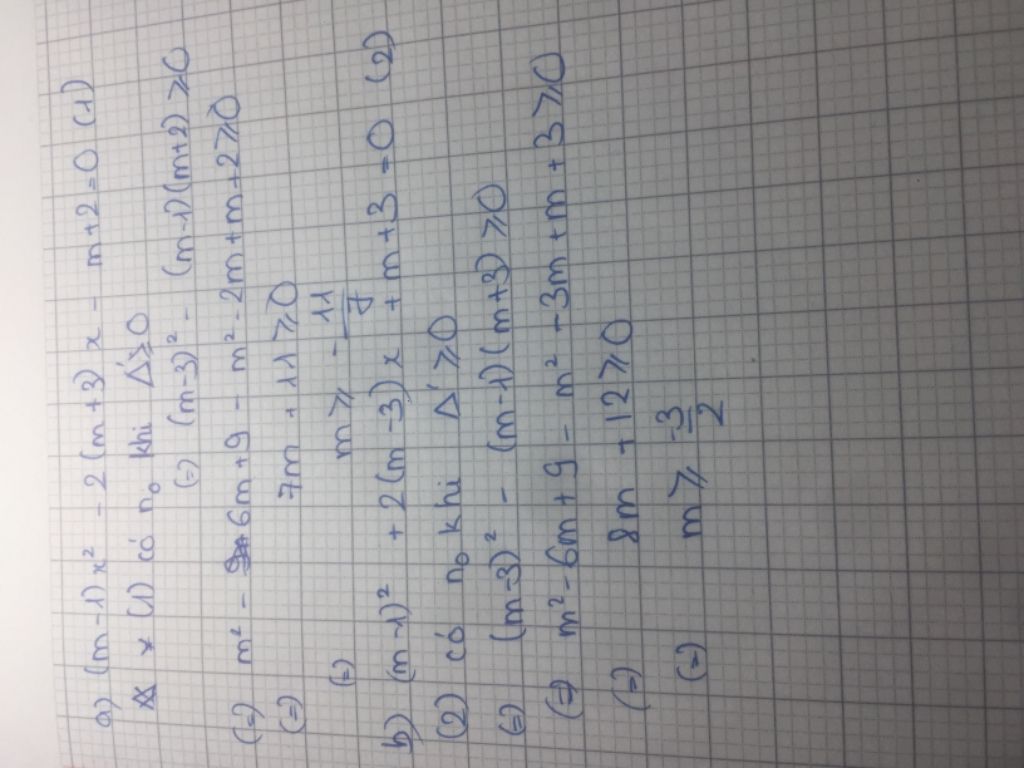 a) (m-1)x² - 2(m+3)x - m+2=0 (1)
* (1) có n₀ khi Δ'≥0
(=) (m-3)² - (m-1)(m+2) ≥0
(=) m² - 6m+9 - m² - 2m+m+2≥0
(=) 7m + 11 ≥0
(=) m≥ -11/7
b) (m-1)² + 2(m-3)x + m+3 =0 (2)
(2) có n₀ khi Δ' ≥0
(=) (m-3)² - (m-1)(m+3) ≥0
(=) m² - 6m+9 - m² - 3m+m+3≥0
(=) 8m +12≥0
(=) m≥ -3/2